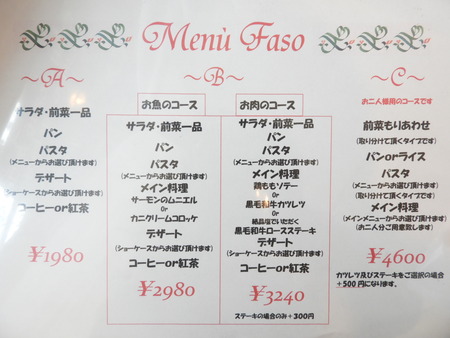 Menù Faso
～A～
サラダ・前菜一品
パン
パスタ
(メニューからお選び頂けます)
デザート
(ショーケースからお選び頂けます)
コーヒーor紅茶
￥1980
～B～
お魚のコース
サラダ・前菜一品
パン
パスタ
(メニューからお選び頂けます)
メイン料理
サーモンのムニエル
or
カニクリームコロッケ
デザート
(ショーケースからお選び頂けます)
コーヒーor紅茶
￥2980
お肉のコース
サラダ・前菜一品
パン
パスタ
(メニューからお選び頂けます)
メイン料理
鶏ももソテー
Or
黒毛和牛カツレツ
or
結晶塩でいただく
黒毛和牛ロースステーキ
デザート
(ショーケースからお選び頂けます)
コーヒーor紅茶
￥3240
ステーキの場合のみ＋300円
～C～
お二人様用のコースです
前菜もりあわせ
(取り分けて頂くタイプです)
パンorライス
パスタ
(メニューからお選び頂けます)
(取り分けて頂くタイプです)
メイン料理
(メインメニューからお選び頂けます)
(お二人分ご用意致します)
￥4600
カツレツ及びステーキをご選択の場合
＋500円になります。